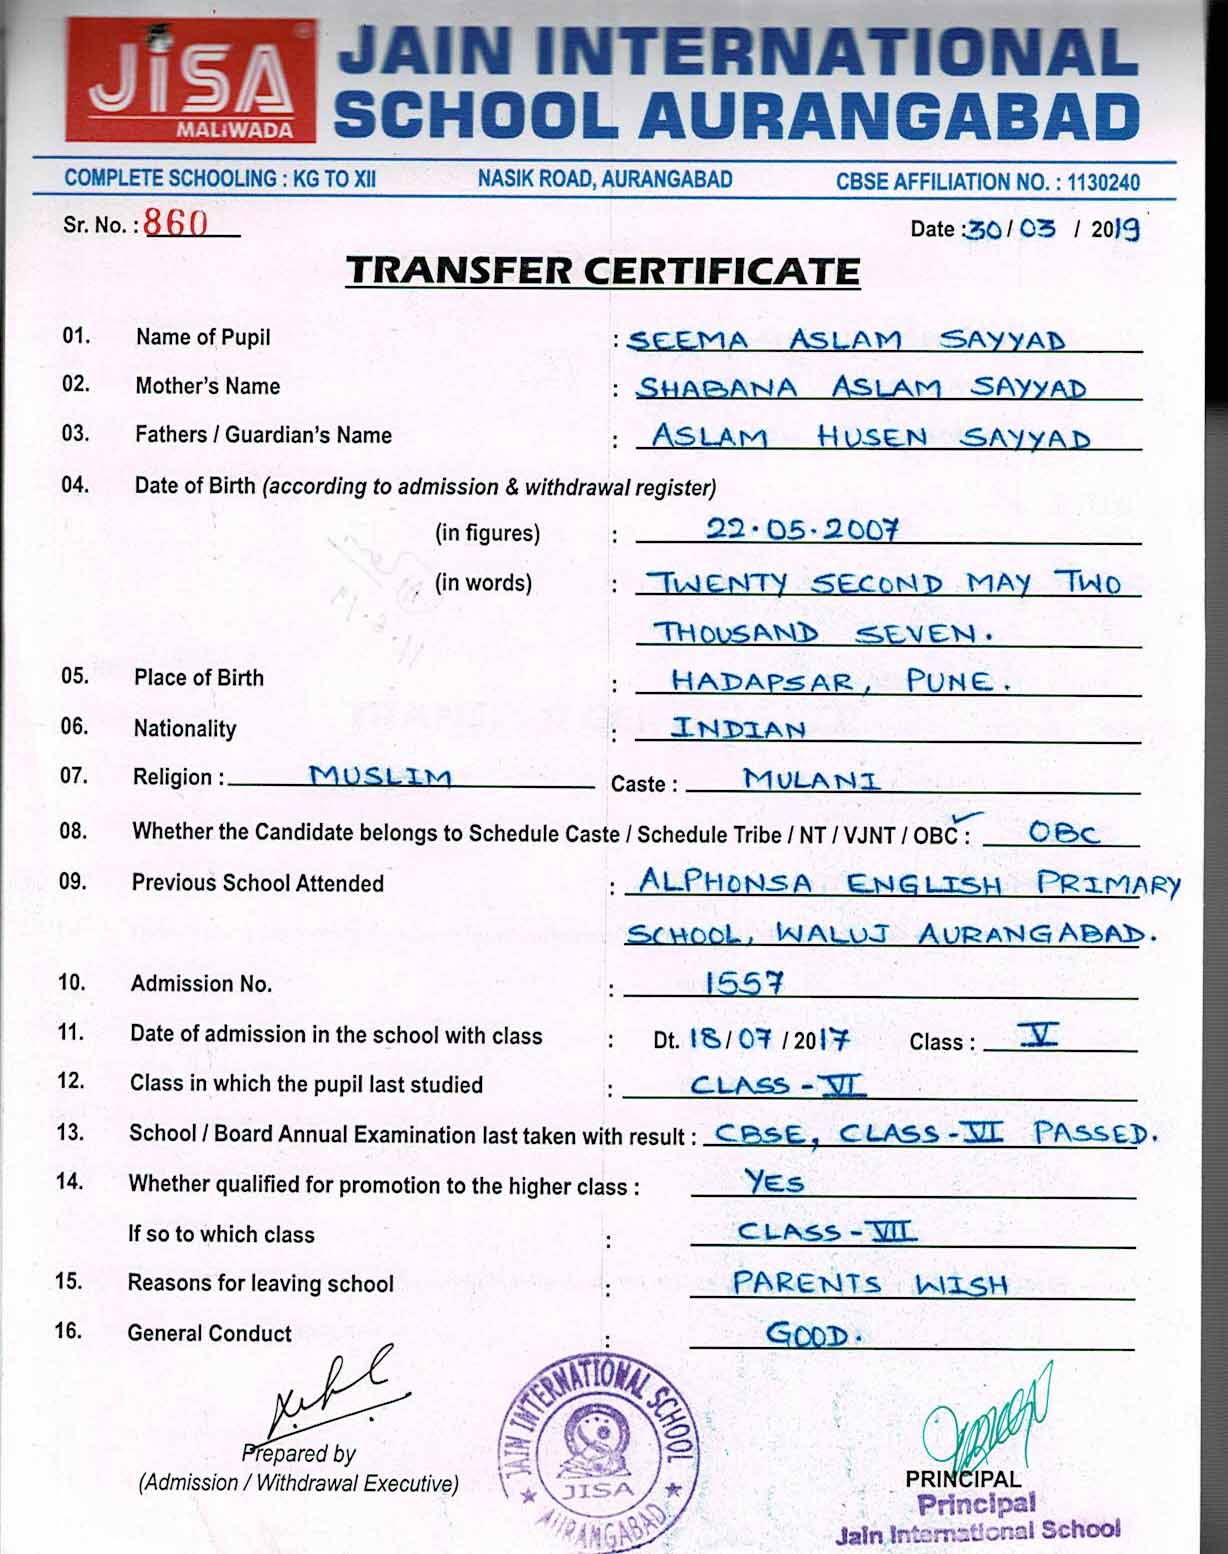 JiSA
MALiWADA
JAIN INTERNATIONAL
SCHOOL AURANGABAD
COMPLETE SCHOOLING : KG TO XII NASIK ROAD, AURANGABAD CBSE AFFILIATION NO. : 1130240
Sr. No. : 860 Date : 30 / 03 / 2019
TRANSFER CERTIFICATE
01. Name of Pupil : SEEMA ASLAM SAYYAD
02. Mother's Name : SHABANA ASLAM SAYYAD
03. Fathers / Guardian's Name : ASLAM HUSEN SAYYAD
04. Date of Birth (according to admission & withdrawal register)
(in figures) : 22.05.2007
(in words) : TWENTY SECOND MAY TWO
THOUSAND SEVEN.
05. Place of Birth : HADAPSAR, PUNE.
06. Nationality : INDIAN
07. Religion : MUSLIM Caste : MULANI
08. Whether the Candidate belongs to Schedule Caste / Schedule Tribe / NT / VJNT / OBC : OBC
09. Previous School Attended : ALPHONSA ENGLISH PRIMARY
SCHOOL, WALUJ AURANGABAD.
10. Admission No. : 1557
11. Date of admission in the school with class : Dt. 18 / 07 / 2017 Class : V
12. Class in which the pupil last studied : CLASS - VI
13. School / Board Annual Examination last taken with result : CBSE, CLASS - VI PASSED.
14. Whether qualified for promotion to the higher class : YES
If so to which class : CLASS - VII
15. Reasons for leaving school : PARENTS WISH
16. General Conduct : GOOD.
JAIN INTERNATIONAL SCHOOL
JISA
AURANGABAD
Prepared by
(Admission / Withdrawal Executive)
PRINCIPAL
Principal
Jain International School